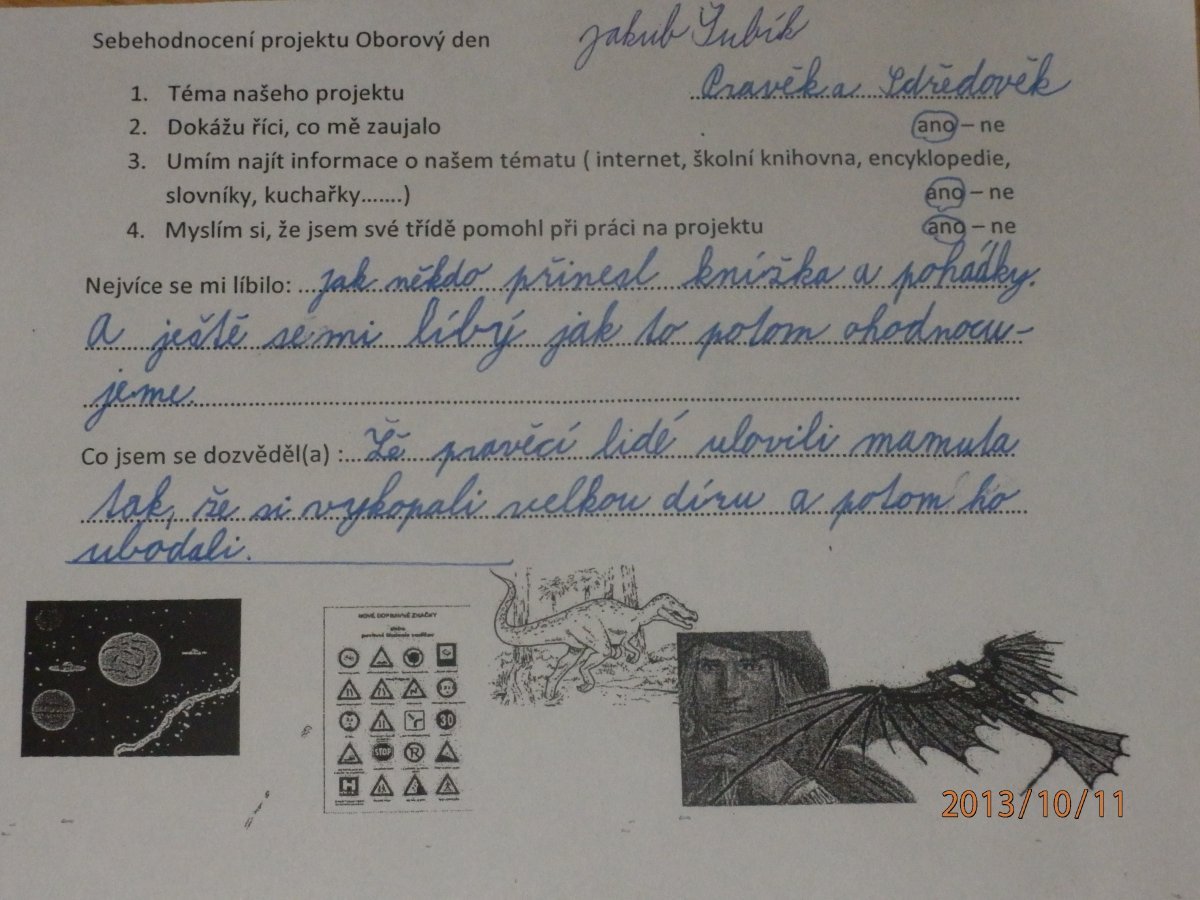 Sebehodnocení projektu Oborový den
Jakub Šubík
1. Téma našeho projektu Pravěk a Sdředověk
2. Dokážu říci, co mě zaujalo ano – ne
3. Umím najít informace o našem tématu ( internet, školní knihovna, encyklopedie,
slovníky, kuchařky…….) ano – ne
4. Myslím si, že jsem své třídě pomohl při práci na projektu ano – ne
Nejvíce se mi líbilo: jak někdo přinesl knížka a pohaďky.
A ještě se mi líbý jak to potom ohodnocu-
jeme.
Co jsem se dozvěděl(a) : Žě pravěcí lidé ulovili mamuta
tak, že si vykopali velkou díru a potom ho
ubodali.
NOVÉ DOPRAVNÉ ZNAČKY
STOP
30
R
H
2013/10/11